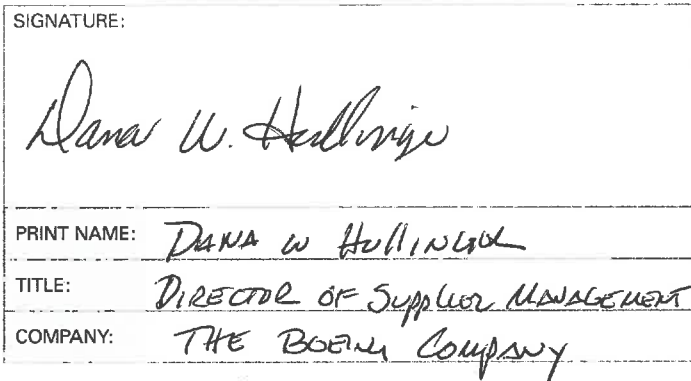 SIGNATURE:
Dana W. Hullinger
PRINT NAME: DANA W HULLINGER
TITLE: DIRECTOR OF SUPPLIER MANAGEMENT
COMPANY: THE BOEING COMPANY